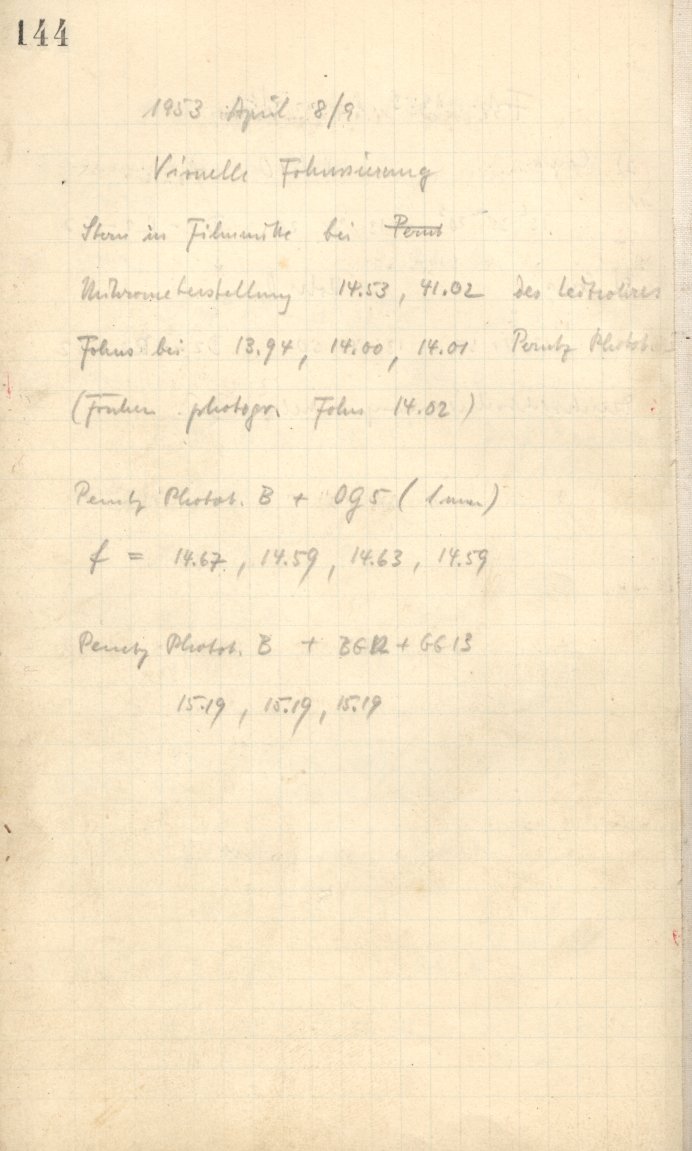 144
1953 April 8/9
Visuelle Fokussierung
Stern in Filmmitte bei
Mikrometerstellung 14.53, 41.02 des Leitrohres
Fokus bei 13.94, 14.00, 14.01 Perutz Photot.
(Früher photogr. Fokus 14.02)
Perutz Photot. B + OG5 (1mm)
f = 14.67, 14.59, 14.63, 14.59
Perutz Photot. B + BG12 + GG13
15.19, 15.19, 15.19